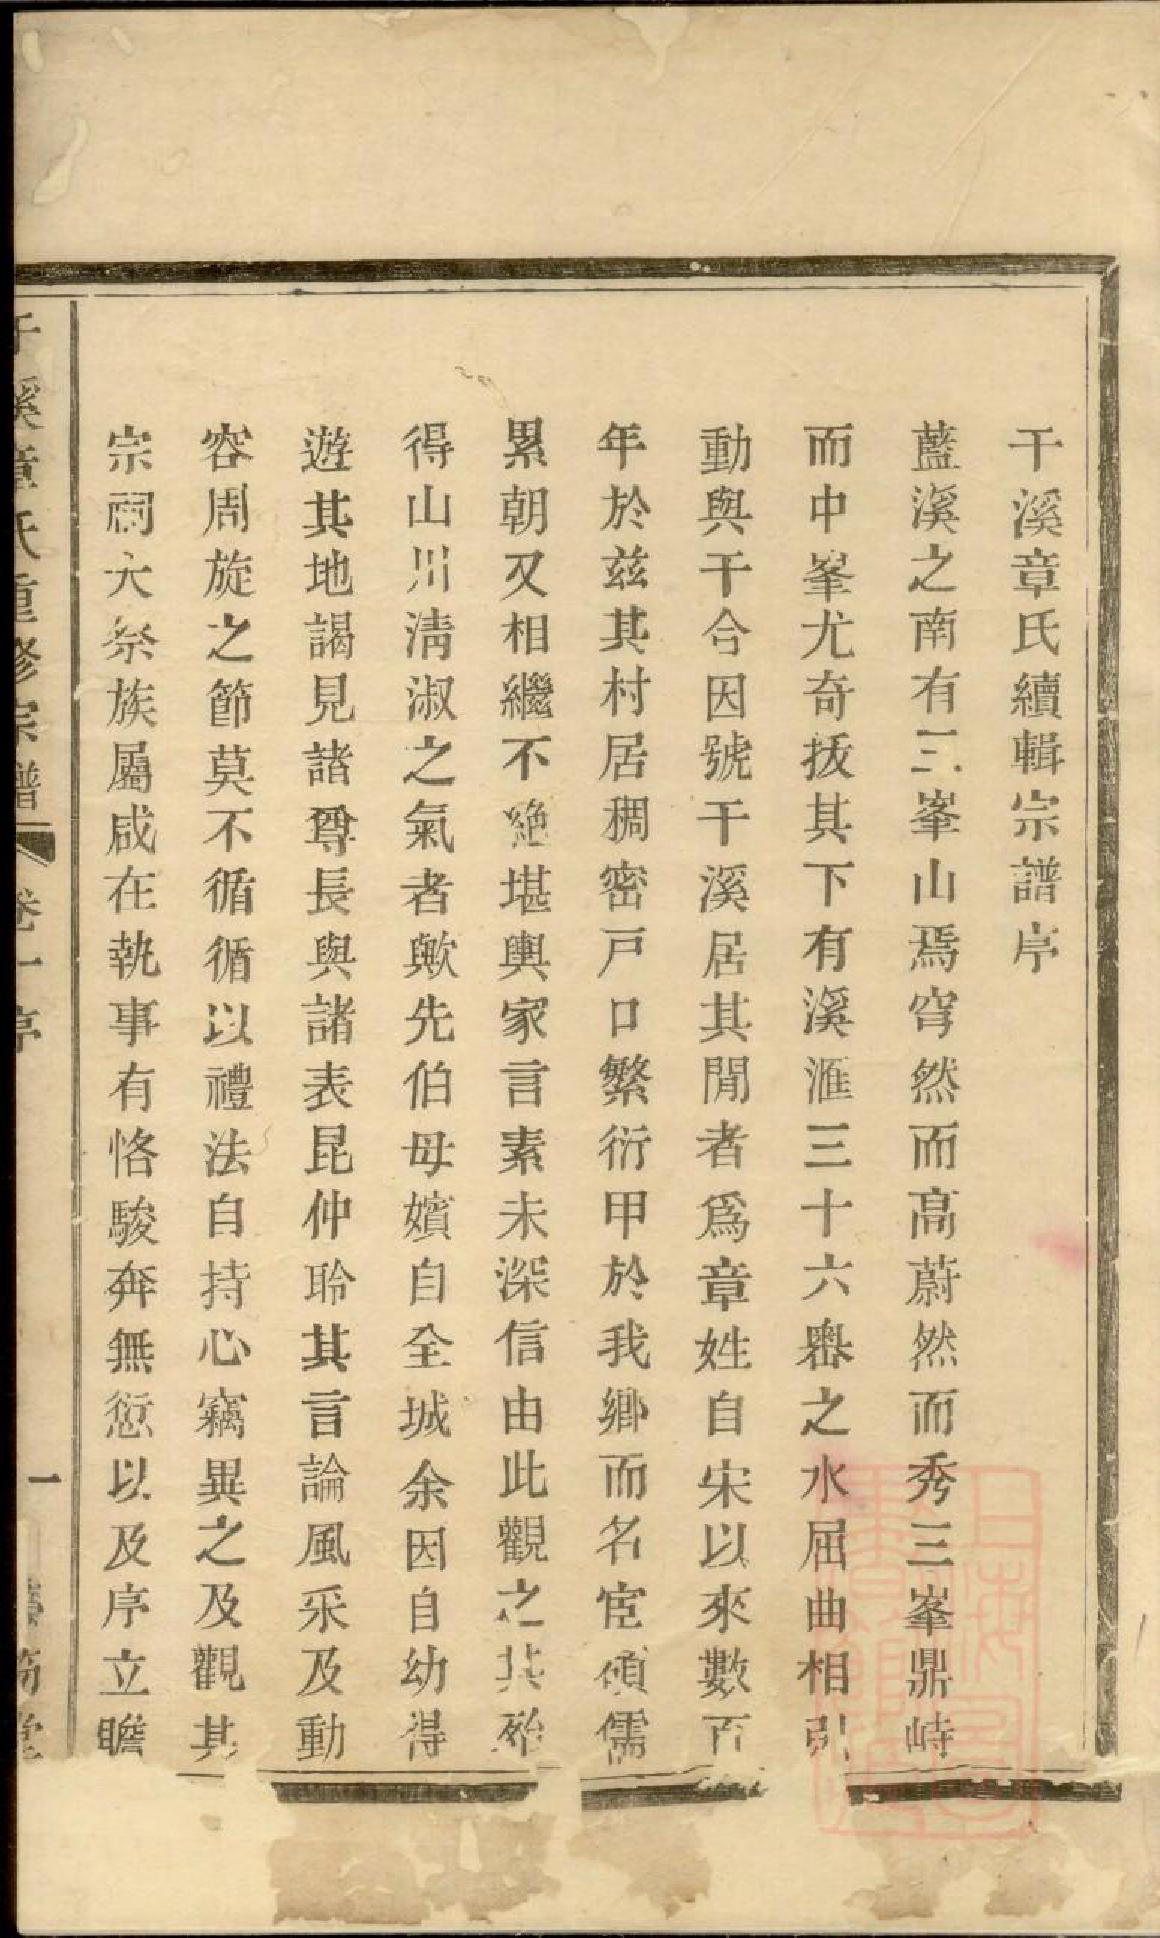 干溪章氏續輯宗譜序
藍溪之南有三峯山焉穹然而高蔚然而秀三峯鼎峙
而中峯尤奇拔其下有溪滙三十六嶴之水屈曲相引
動與干合因號干溪居其閒者爲章姓自宋以來數百
年於兹其村居稠密戸口繁衍甲於我鄉而名宦碩儒
累朝又相繼不絶堪輿家言素未深信由此觀之其殆
得山川淸淑之氣者歟先伯母嬪自全城余因自幼得
遊其地謁見諸尊長與諸表昆仲聆其言論風采及動
容周旋之節莫不循循以禮法自持心竊異之及觀其
宗祠大祭族屬咸在執事有恪駿奔無愆以及序立瞻
干溪章氏重修宗譜 卷一序 一
上海圖書館藏